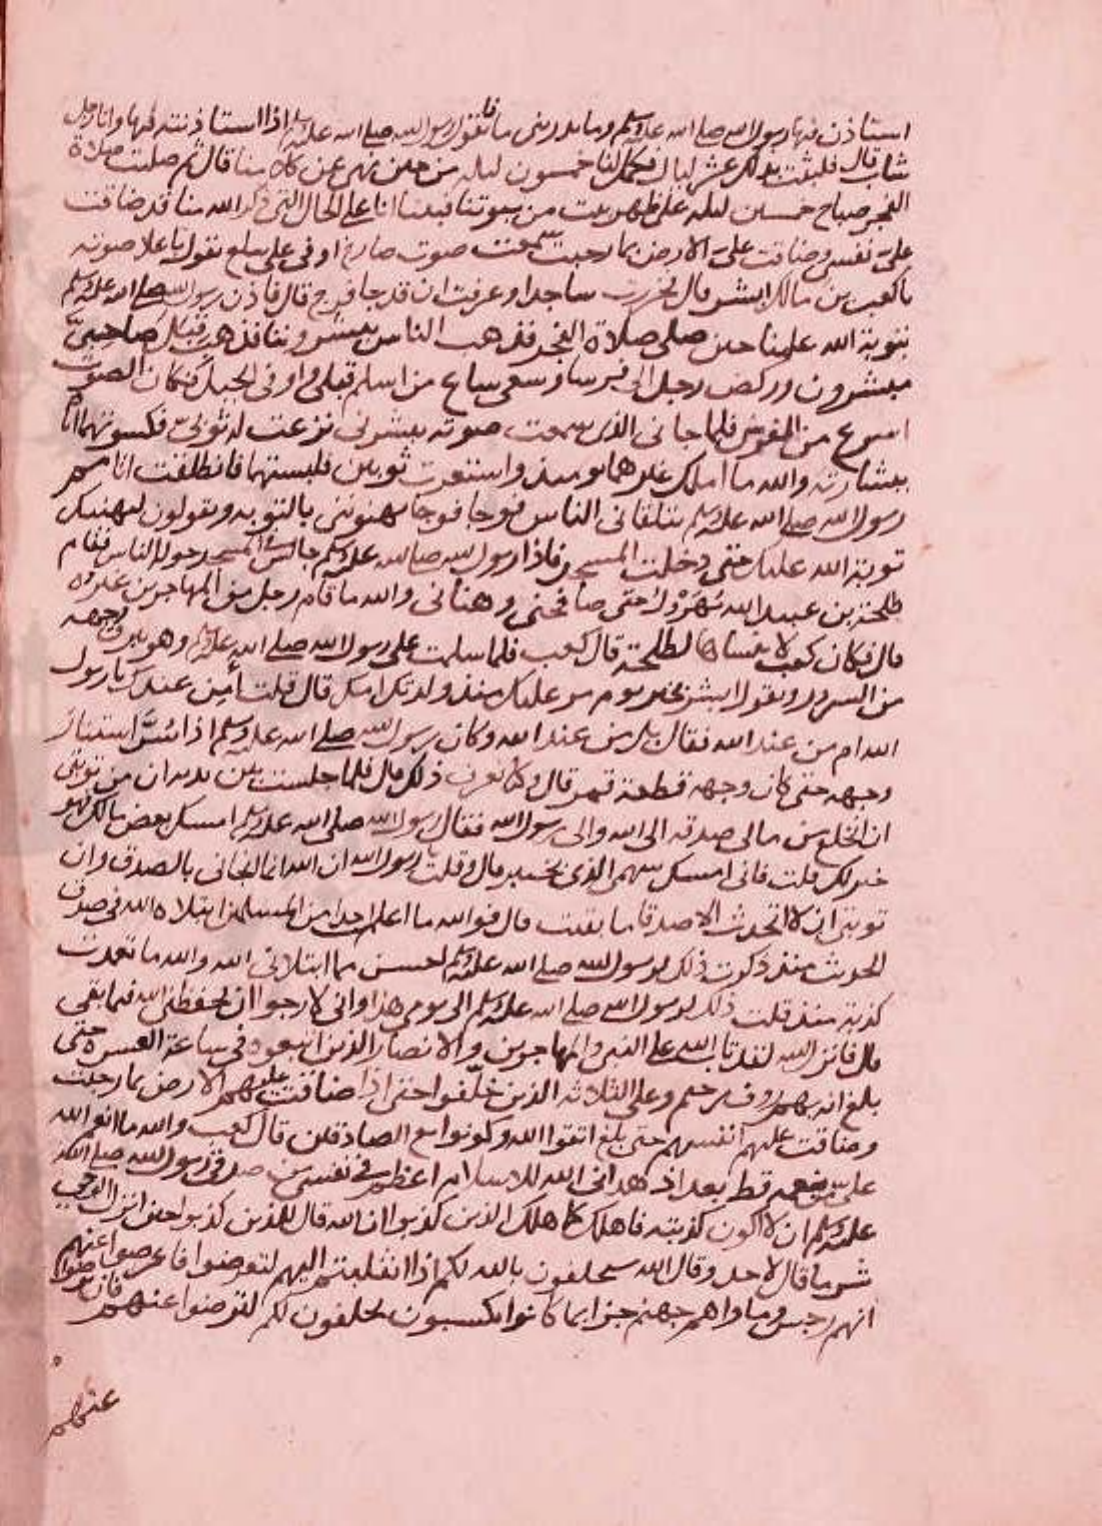 استاذن فيها رسول الله صلى الله عليه وسلم وما يدريني ما يقول رسول الله صلى الله عليه وسلم اذا استاذنته فيها وانا رجل
شاب قال فلبثت بذلك عشر ليال فكمل لنا خمسون ليلة من حين نهى عن كلامنا قال ثم صليت صلاة
الفجر صباح خمسين ليلة على ظهر بيت من بيوتنا فبينا انا على الحال التي ذكر الله منا قد ضاقت
علي نفسي وضاقت علي الارض بما رحبت سمعت صوت صارخ اوفى على سلع يقول باعلا صوته
يا كعب بن مالك ابشر قال فخررت ساجدا وعرفت ان قد جا فرج قال فاذن رسول الله صلى الله عليه وسلم
بتوبة الله علينا حين صلى صلاة الفجر فذهب الناس يبشروننا فذهب قبل صاحبيّ
مبشرون وركض رجل الى فرسا وسعى ساع من اسلم قبلي واوفى الجبل فكان الصوت
اسرع من الفرس فلما جاني الذي سمعت صوته يبشرني نزعت له ثوبيّ فكسوتهما اياه
ببشارته والله ما املك غيرهما يومئذ واستعرت ثوبين فلبستهما فانطلقت اتامم
رسول الله صلى الله عليه وسلم يتلقاني الناس فوجا فوجا يهنوني بالتوبه ويقولون ليهنيك
توبة الله عليك حتى دخلت المسجد فاذا رسول الله صلى الله عليه وسلم جالس في المسجد وحوله الناس فقام
طلحة بن عبيد الله يُهَرْوِلُ حتى صافحني وهناني والله ما قام رجل من المهاجرين غيره
قال فكان كعب لا ينساها لطلحة قال كعب فلما سلمت على رسول الله صلى الله عليه وسلم وهو يبرق وجهه
من السرور ويقول ابشر بخير يوم مر عليك منذ ولدتك امك قال قلت أمِن عندك يا رسول
الله ام من عند الله فقال بل من عند الله وكان رسول الله صلى الله عليه وسلم اذا سُرَّ استنار
وجهه حتى كان وجهه قطعة قمر قال وكنا نعرف ذلك قال فلما جلست بين يديه ان من توبتي
ان انخلع من مالي صدقة الى الله والى رسول الله فقال رسول الله صلى الله عليه وسلم امسك بعض مالك فهو
خير لك قلت فاني امسك سهمي الذي بخيبر قال وقلت يا رسول الله ان الله انما انجاني بالصدق وان
توبتي ان لا اتحدث الا صدقا ما بقيت قال فوالله ما اعلم احدا من المسلمين ابتلاه الله في صدق
الحديث منذ ذكرت ذلك لرسول الله صلى الله عليه وسلم احسن مما ابتلاني الله والله ما تعمدت
كذبة منذ قلت ذلك لرسول الله صلى الله عليه وسلم الى يومي هذا واني لارجوا ان يحفظني الله فيما بقي
قال فانزل الله لقد تاب الله على النبي والمهاجرين والانصار الذين اتبعوه في ساعة العسرة حتى
بلغ انه بهم رؤف رحيم وعلى الثلاثة الذين خلّفوا حتى اذا ضاقت عليهم الارض بما رحبت
وضاقت عليهم انفسهم حتى بلغ اتقوا الله وكونوا مع الصادقين قال كعب والله ما انعم الله
عليّ نعمة قط بعد اذ هداني الله للاسلام اعظم في نفسي من صدقي رسول الله صلى الله
عليه وسلم ان لا اكون كذبته فاهلك كما هلك الذين كذبوا ان الله قال للذين كذبوا حين انزل الوحي
شر ما قال لاحد وقال الله سيحلفون بالله لكم اذا انقلبتم اليهم لتعرضوا فاعرضوا عنهم
انهم رجس وماواهم جهنم جزا بما كانوا يكسبون يحلفون لكم لترضوا عنهم فان ترضوا
عنهم